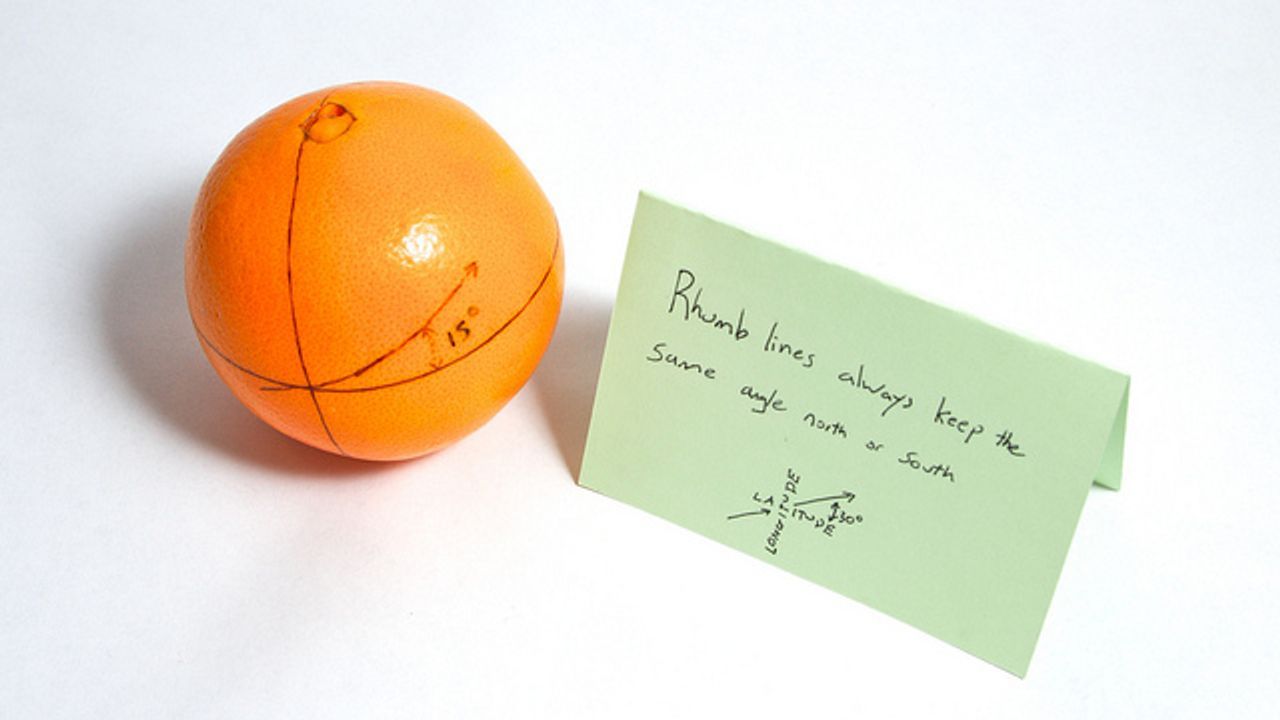 15°
Rhumb lines always keep the
same angle north or south
LATITUDE
LONGITUDE
30°